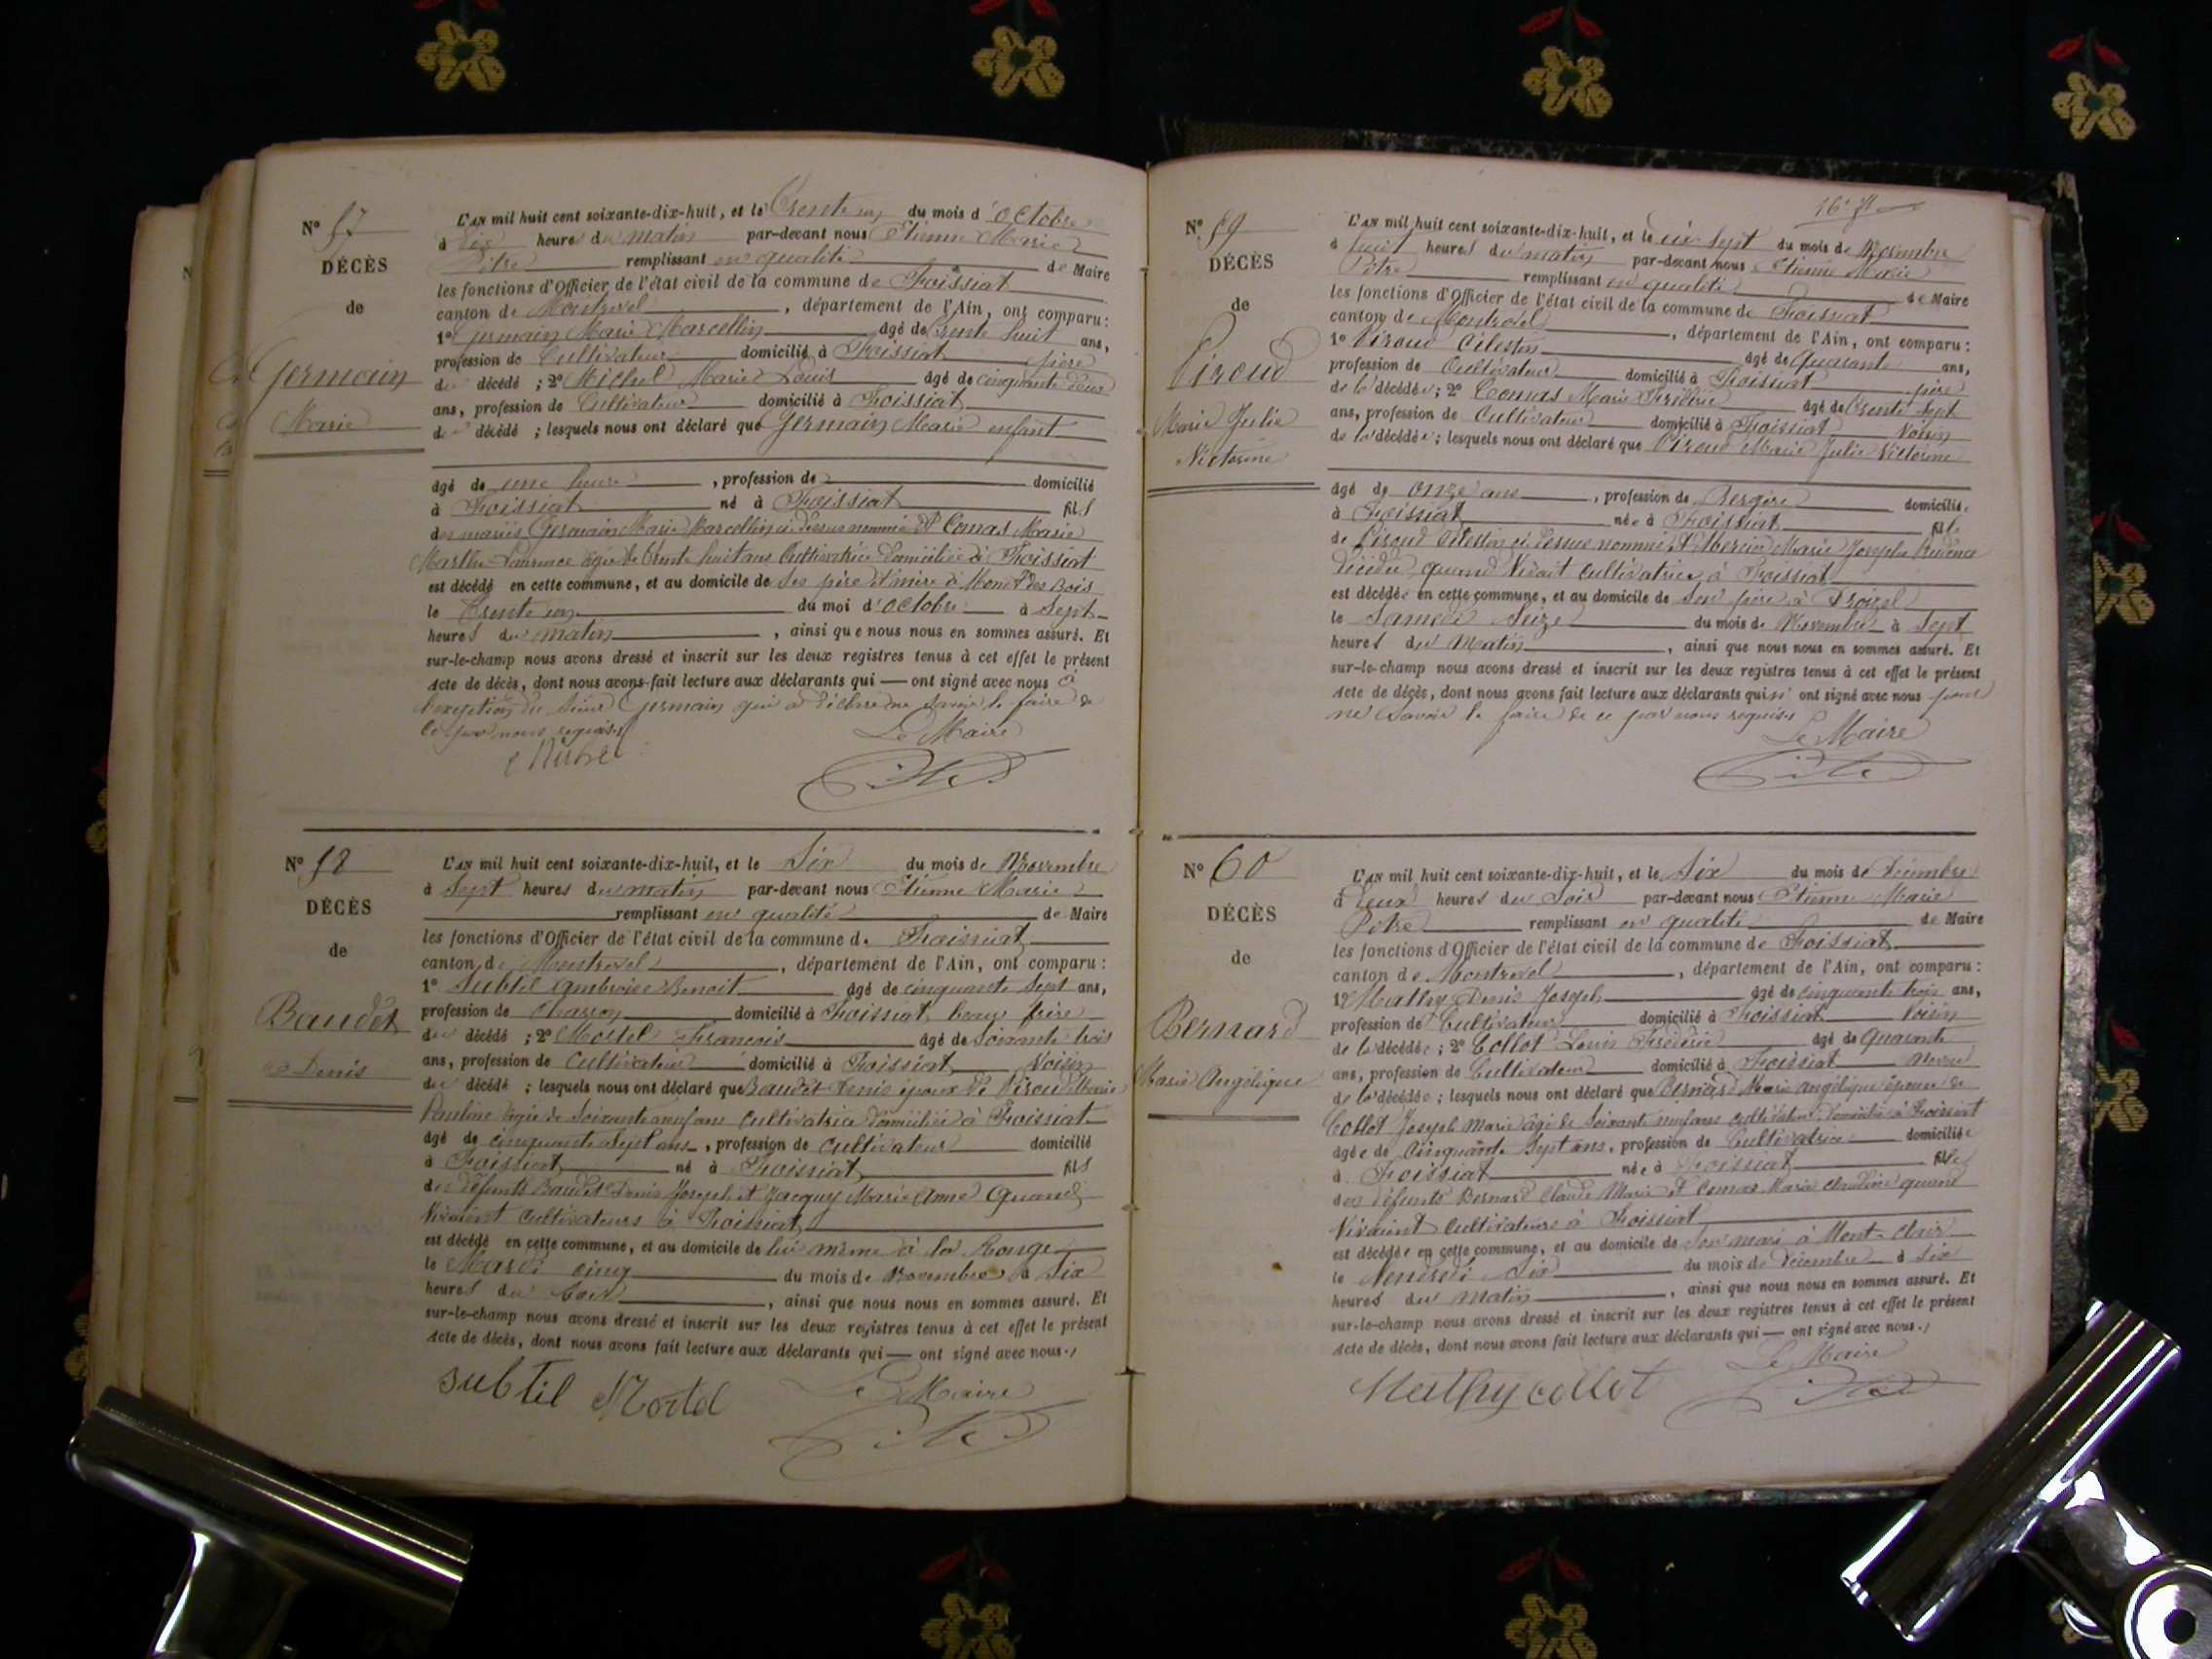 N° 57
DÉCÈS
de
Germain
Marie
L'AN mil huit cent soixante-dix-huit, et le Trente un du mois d'octobre
à Dix heures du matin par-devant nous Etienne Marie
Pitre remplissant en qualité de Maire
les fonctions d'Officier de l'état civil de la commune de Foissiat
canton de Montrevel, département de l'Ain, ont comparu :
1° Germain Marie Marcellin âgé de trente huit ans,
profession de Cultivateur domicilié à Foissiat père
du décédé ; 2° Michel Marie Louis âgé de cinquante deux
ans, profession de Cultivateur domicilié à Foissiat
du décédé ; lesquels nous ont déclaré que Germain Marie enfant
âgé de une heure, profession de domicilié
à Foissiat né à Foissiat fils
des mariés Germain Marie Marcellin ci dessus nommé et Comas Marie
Marthe Laurence âgée de trente huit ans Cultivatrice domiciliée à Foissiat
est décédé en cette commune, et au domicile de ses père et mère à Mont des Bois
le Trente un du moi d'octobre à Sept
heures du matin, ainsi que nous nous en sommes assuré. Et
sur-le-champ nous avons dressé et inscrit sur les deux registres tenus à cet effet le présent
acte de décès, dont nous avons fait lecture aux déclarants qui — ont signé avec nous à
l'exeption du sieur Germain qui a déclaré ne savoir le faire de
ce par nous requis
Le Maire
Michel
N° 58
DÉCÈS
de
Baudet
Denis
L'AN mil huit cent soixante-dix-huit, et le Six du mois de Novembre
à Sept heures du matin par-devant nous Etienne Marie
remplissant en qualité de Maire
les fonctions d'Officier de l'état civil de la commune de Foissiat
canton de Montrevel, département de l'Ain, ont comparu :
1° Subtil Ambroise Benoit âgé de cinquante Sept ans,
profession de Charron domicilié à Foissiat beau frère
du décédé ; 2° Mortel François âgé de Soixante trois
ans, profession de Cultivateur domicilié à Foissiat Voisin
du décédé ; lesquels nous ont déclaré que Baudet Denis époux de Piroud Marie
Pauline âgée de Soixante neuf ans cultivatrice domiciliée à Foissiat
âgé de cinquante Sept ans, profession de Cultivateur domicilié
à Foissiat né à Foissiat fils
des défunts Baudet Denis Joseph et Jacquy Marie Anne quand
Vivaient Cultivateurs à Foissiat
est décédé en cette commune, et au domicile de lui même à la Ronge
le Mardi cinq du mois de Novembre à Six
heures du Soir, ainsi que nous nous en sommes assuré. Et
sur-le-champ nous avons dressé et inscrit sur les deux registres tenus à cet effet le présent
acte de décès, dont nous avons fait lecture aux déclarants qui — ont signé avec nous.
subtil Mortel Le Maire
N° 59
DÉCÈS
de
Piroud
Marie Julie
Victorine
L'AN mil huit cent soixante-dix-huit, et le dix Sept du mois de Novembre
à huit heures du matin par-devant nous Etienne Marie
Pitre remplissant en qualité de Maire
les fonctions d'Officier de l'état civil de la commune de Foissiat
canton de Montrevel, département de l'Ain, ont comparu :
1° Piroud Célestin âgé de Quarante ans,
profession de Cultivateur domicilié à Foissiat père
de la décédée ; 2° Comas Marie Frédéric âgé de trente Sept
ans, profession de Cultivateur domicilié à Foissiat Voisin
de la décédée ; lesquels nous ont déclaré que Piroud Marie Julie Victorine
âgé de onze ans, profession de Bergère domiciliée
à Foissiat née à Foissiat fille
de Piroud Célestin ci dessus nommé et Mercier Marie Josephe Prudence
décédée quand Vivait Cultivatrice à Foissiat
est décédée en cette commune, et au domicile de son père à
le Samedi Seize du mois de Novembre à Sept
heures du matin, ainsi que nous nous en sommes assuré. Et
sur-le-champ nous avons dressé et inscrit sur les deux registres tenus à cet effet le présent
acte de décès, dont nous avons fait lecture aux déclarants qui n'ont signé avec nous pour
ne savoir le faire de ce par nous requis
Le Maire
N° 60
DÉCÈS
de
Bernard
Marie Angélique
L'AN mil huit cent soixante-dix-huit, et le Six du mois de Décembre
à Deux heures du Soir par-devant nous Etienne Marie
Pitre remplissant en qualité de Maire
les fonctions d'Officier de l'état civil de la commune de Foissiat
canton de Montrevel, département de l'Ain, ont comparu :
1° Mathy Denis Joseph âgé de cinquante trois ans,
profession de Cultivateur domicilié à Foissiat Voisin
de la décédée ; 2° Collot Louis Frédéric âgé de Quarante
ans, profession de Cultivateur domicilié à Foissiat neveu
de la décédée ; lesquels nous ont déclaré que Bernard Marie Angélique épouse de
Collot Joseph Marie âgé de Soixante neuf ans cultivateur domicilié à Foissiat
âgée de Cinquante Sept ans, profession de Cultivatrice domiciliée
à Foissiat née à Foissiat fille
des défunts Bernard Claude Marie et Comas Marie Claudine quand
Vivaient Cultivateurs à Foissiat
est décédée en cette commune, et au domicile de son mari à Mont-Clair
le Vendredi Six du mois de Décembre à Six
heures du matin, ainsi que nous nous en sommes assuré. Et
sur-le-champ nous avons dressé et inscrit sur les deux registres tenus à cet effet le présent
acte de décès, dont nous avons fait lecture aux déclarants qui — ont signé avec nous.
Mathy collot Le Maire